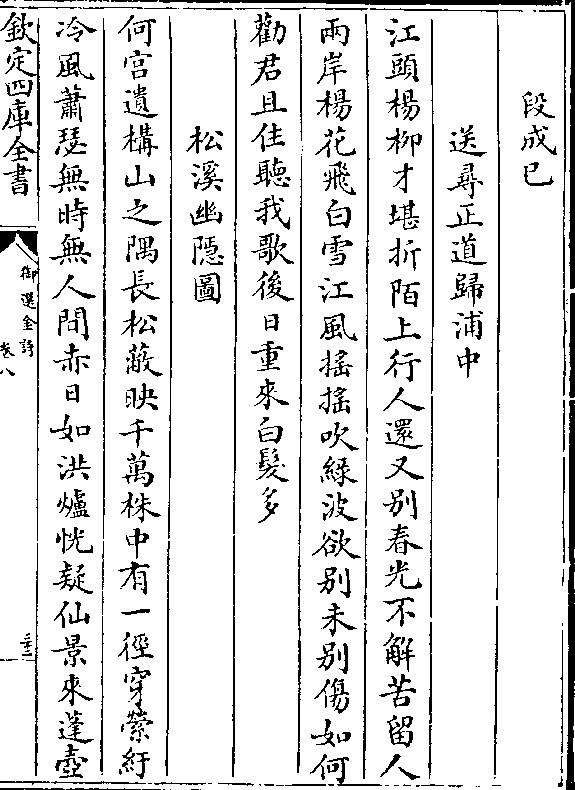 段成已
送尋正道歸浦中
江頭楊柳才堪折陌上行人還又别春光不解苦留人
兩岸楊花飛白雪江風摇摇吹緑波欲别未别傷如何
勸君且住聽我歌後日重來白髮多
松溪幽隠圖
何宫遺構山之隅長松蔽映千萬株中有一徑穿縈紆
冷風蕭瑟無時無人間赤日如洪爐恍疑仙景來蓬壺
欽定四庫全書
御選金詩
卷八
三十三